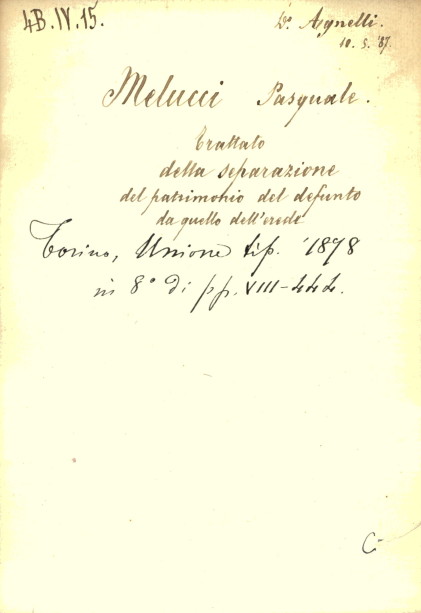 4B.IV.15.
Dº Agnelli.
10. 5. '87.
Melucci Pasquale.
Trattato
della separazione
del patrimonio del defunto
da quello dell'erede
Torino, Unione tip. 1878
in 8º di pp. VIII-444.
C.